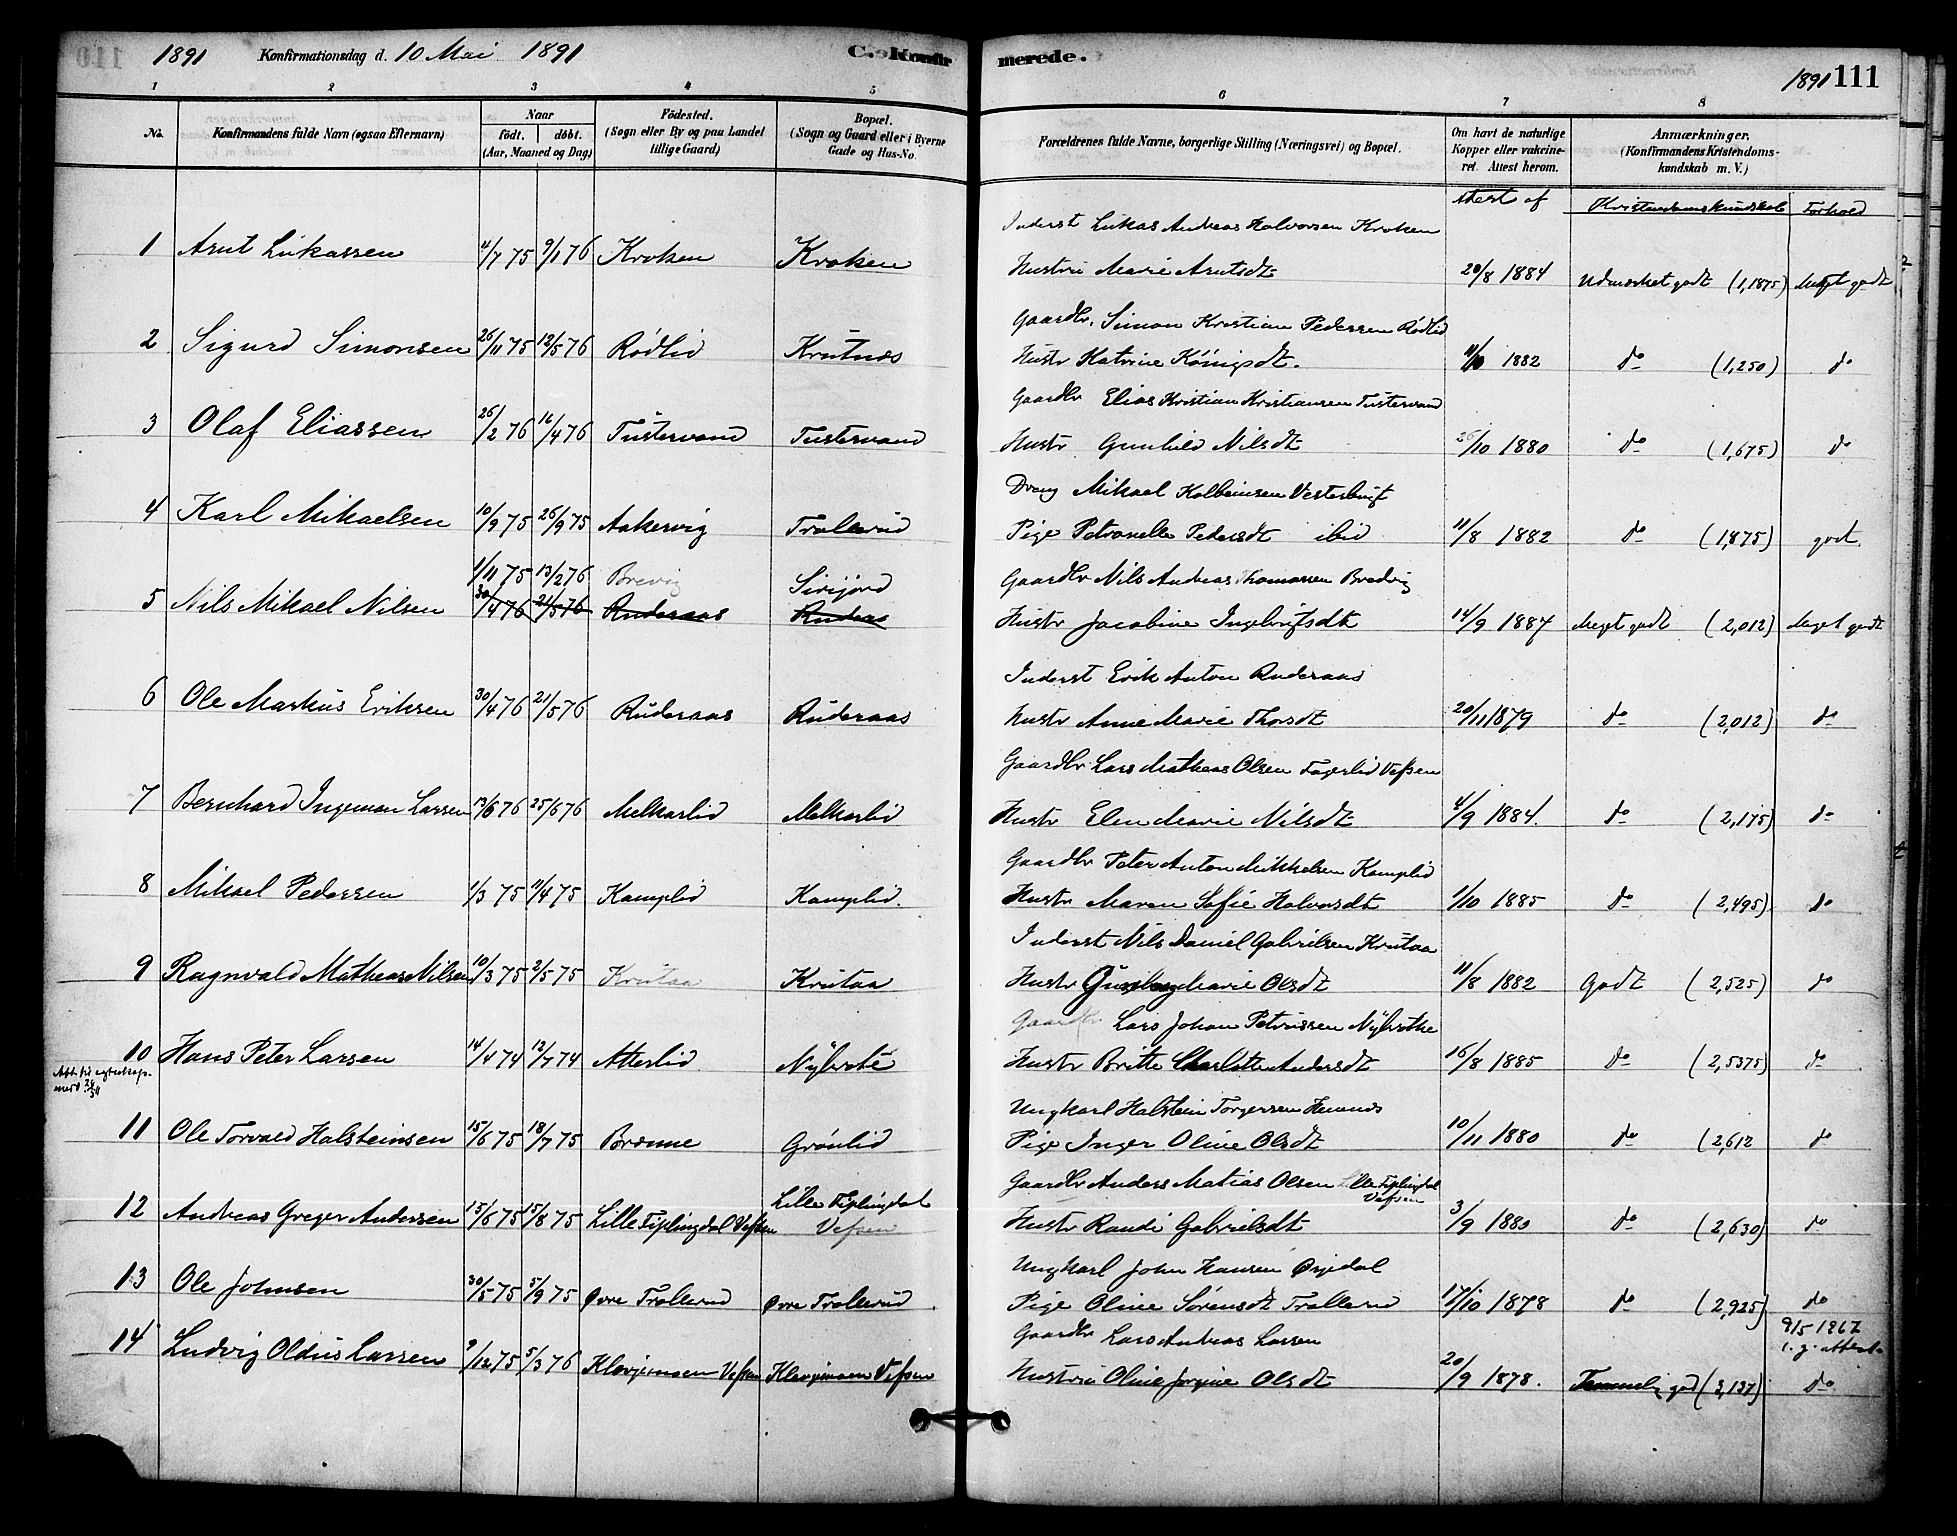 1891 Konfirmationsdag d. 10 Mai 1891 C. Konfirmerede. 1891 111
1 2 3 4 5 6 7 8
No. Konfirmandens fulde Navn (ogsaa Efternavn) Naar født. døbt. (Aar, Maaned og Dag) Fødested. (Sogn eller By og paa Landet tillige Gaard) Bopæl. (Sogn og Gaard eller i Byerne Gade og Hus-No. Forældrenes fulde Navne, borgerlige Stilling (Næringsvei) og Bopæl. Om havt de naturlige Kopper eller vakcineret. Attest herom. Anmærkninger. (Konfirmandens Kristendomskundskab m. V.)
Attest af Kristendomskundskab Forhold
Inderst Lukas Andreas Halvorsen Kroken
1 Arnt Lukassen 4/7 75 9/1 76 Kroken Kroken Hustru Marie Arntsdt 20/8 1884 Udmærket godt (1,1875) Meget godt
Gaardbr. Simon Kristian Pedersen Rødlid
2 Sigurd Simonsen 26/11 75 12/5 76 Rødlid Krutnes Hustr Katrine Kønigsdt. 11/10 1882 do (1,250) do
Gaardbr Elias Kristian Kristiansen Tustervand
3 Olaf Eliassen 26/2 76 16/4 76 Tustervand Tustervand Hustr Gunhild Nilsdt 26/10 1880 do (1,675) do
Dreng Mikael Kolbeinsen Vesterbugt
4 Karl Mikaelsen 10/9 75 26/9 75 Aakervig Trollerud Pige Petronelle Pedersdt ibid 11/8 1882 do (1,875) godt
1/11 75 13/2 76 Brevig Sirijord Gaardbr Nils Andreas Thomassen Bredvig
5 Nils Mikael Nilsen 30/4 76 21/5 76 Ruderaas Ruderas Hustr Jacobine Ingebrigtsdt 14/9 1884 Meget godt (2,012) Meget godt
Inderst Erik Anton Ruderaas
6 Ole Markus Eriksen 30/4 76 21/5 76 Ruderaas Ruderaas Hustr Anne Marie Thorsdt 20/11 1879 do (2,012) do
Gaardbr Lars Matheas Olsen Fagerlid Vefsen
7 Bernhard Ingeman Larsen 13/6 76 25/6 76 Melkarlid Melkarlid Hustr Elen Marie Nilsdt 4/9 1884. do (2,175) do
Gaardbr Peter Anton Mikkelsen Kamplid
8 Mikael Pedersen 1/3 75 11/4 75 Kamplid Kamplid. Hustr Maren Sofie Halvorsdt 1/10 1885 do (2,495) do
Inderst Nils Daniel Gabrielsen Krutaa
9 Ragnvald Matheas Nilsen 10/3 75 2/5 75 Krutaa Krutaa Hustr Gunborg Marie Olsdt 11/8 1882 Godt (2,525) do
Gaardbr Lars Johan Petrissen Nybrotte
10 Hans Peter Larsen 14/4 74 12/7 74 Atterlid Nybrote Hustr Britte Charlotte Andersdt 16/8 1885 do (2,5375) do
Ungkarl Halstein Torgersen
11 Ole Torvald Halsteinsen 15/6 75 18/7 75 Børonne Grønlid Pige Inger Oline Olsdt 10/11 1880 do (2,612 do
Lille Fiplingdal Gaardbr Anders Matias Olsen Lille Fiplingdal Vefsen
12 Andreas Greger Andersen 15/6 75 15/8 75 Lille Fiplingdal Vefsen Vefsen Hustr Randi Gabrielsdt 3/9 1880 do (2,630) do
Ungkarl John Hansen Ørjedal
13 Ole Johnsen 30/5 75 5/9 75 Øvre Trollerud Øvre Trollerud Pige Oline Sørensdt Trollerud 17/10 1878 do (2,925) do
Gaardbr Lars Andreas Larsen 9/5 1967 i. g. attest
14 Ludvig Oldus Larsen 9/12 75 5/3 76 Klovjemoen Vefsen Klovjemoen Vefsen Hustru Oline Jorgine Olsdt 20/9 1878. Temmelig god (3,137) do